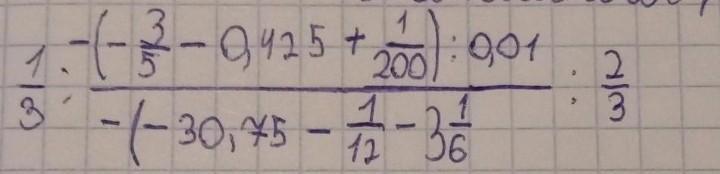 1/3 : (-(-3/5 - 0,425 + 1/200) : 0,01) / (-(-30,75 - 1/12 - 3 1/6) : 2/3